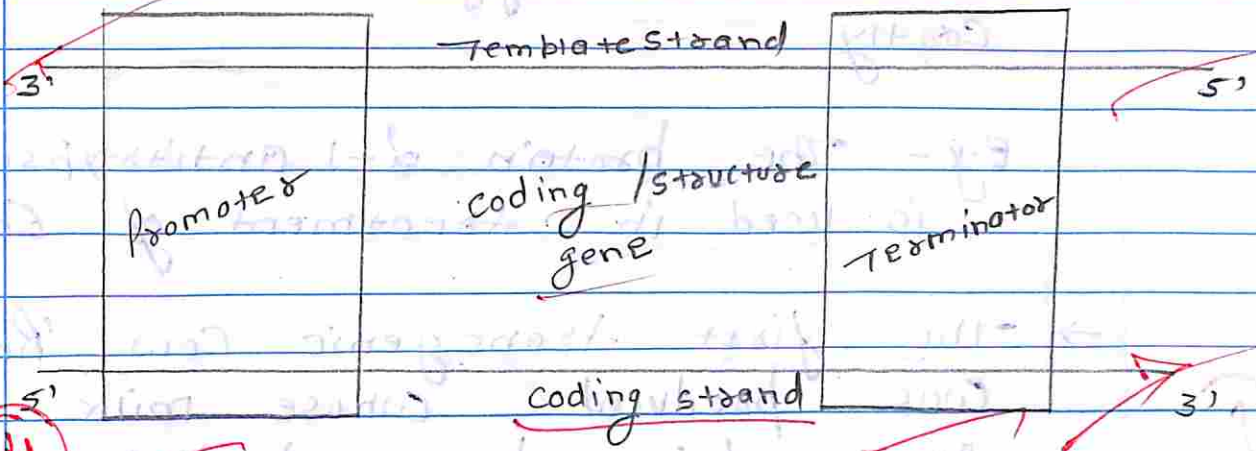 Template strand
3' 5'
Promoter
coding / structure
gene
Terminator
5' coding strand 3'